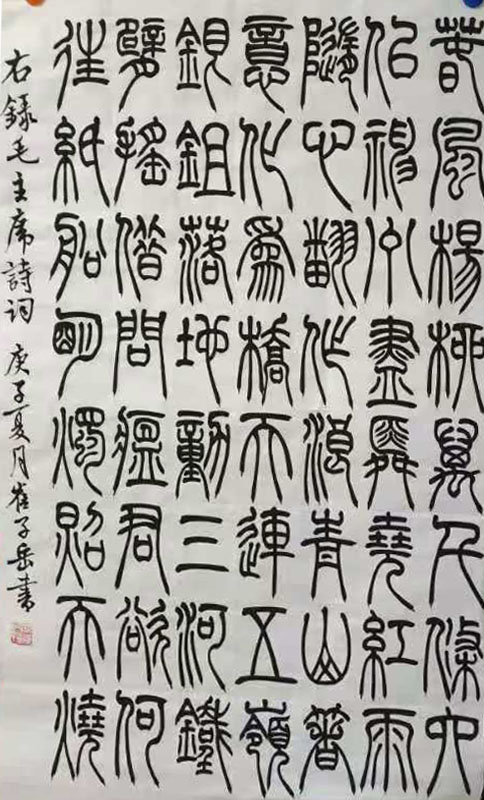 春風楊柳萬千條六
億神州盡舜堯紅雨
隨心翻作浪青山着
意化為橋天連五嶺
銀鉏落地動三河鐵
臂搖借問瘟君欲何
往紙船明燭照天燒
右錄毛主席詩詞 庚子夏月崔子岳書